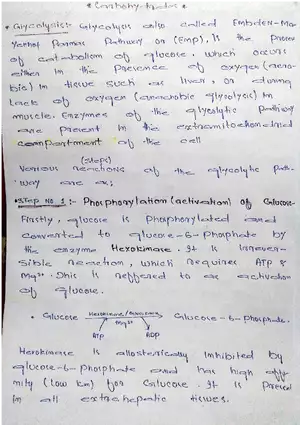 * Carbohydrates *
* Glycolysis:- Glycolysis also called Embden-Me
yerhof Parnas Pathway or (Emp), Is the Process
of catabolism of glucose. which occurs
either in the Presence of oxygen (aero-
bic) in tissue such as liver, or during
lack of oxygen (anaerobic glycolysis) in
muscle. Enzymes of the glycolytic Pathway
are present in the extramitochondrial
compartment of the cell
(steps)
Various reactions of the glycolytic path-
way are as;
*Step No 1:- Phosphorylation (activation) of Glucose-
Firstly, glucose is phosphorylated and
converted to glucose-6-phosphate by
the enzyme Hexokinase. It is Irrever-
sible reaction, which requires ATP &
Mg²⁺. This is reffered to as activation
of glucose.
• Glucose Hexokinase/ Glucose-6-Phosphate.
Mg²⁺
ATP ADP
Hexokinase is allosterically inhibited by
glucose-6-phosphate and has high affi
nity (low km) for Glucose. It is Present
in all extrahepatic tissues.